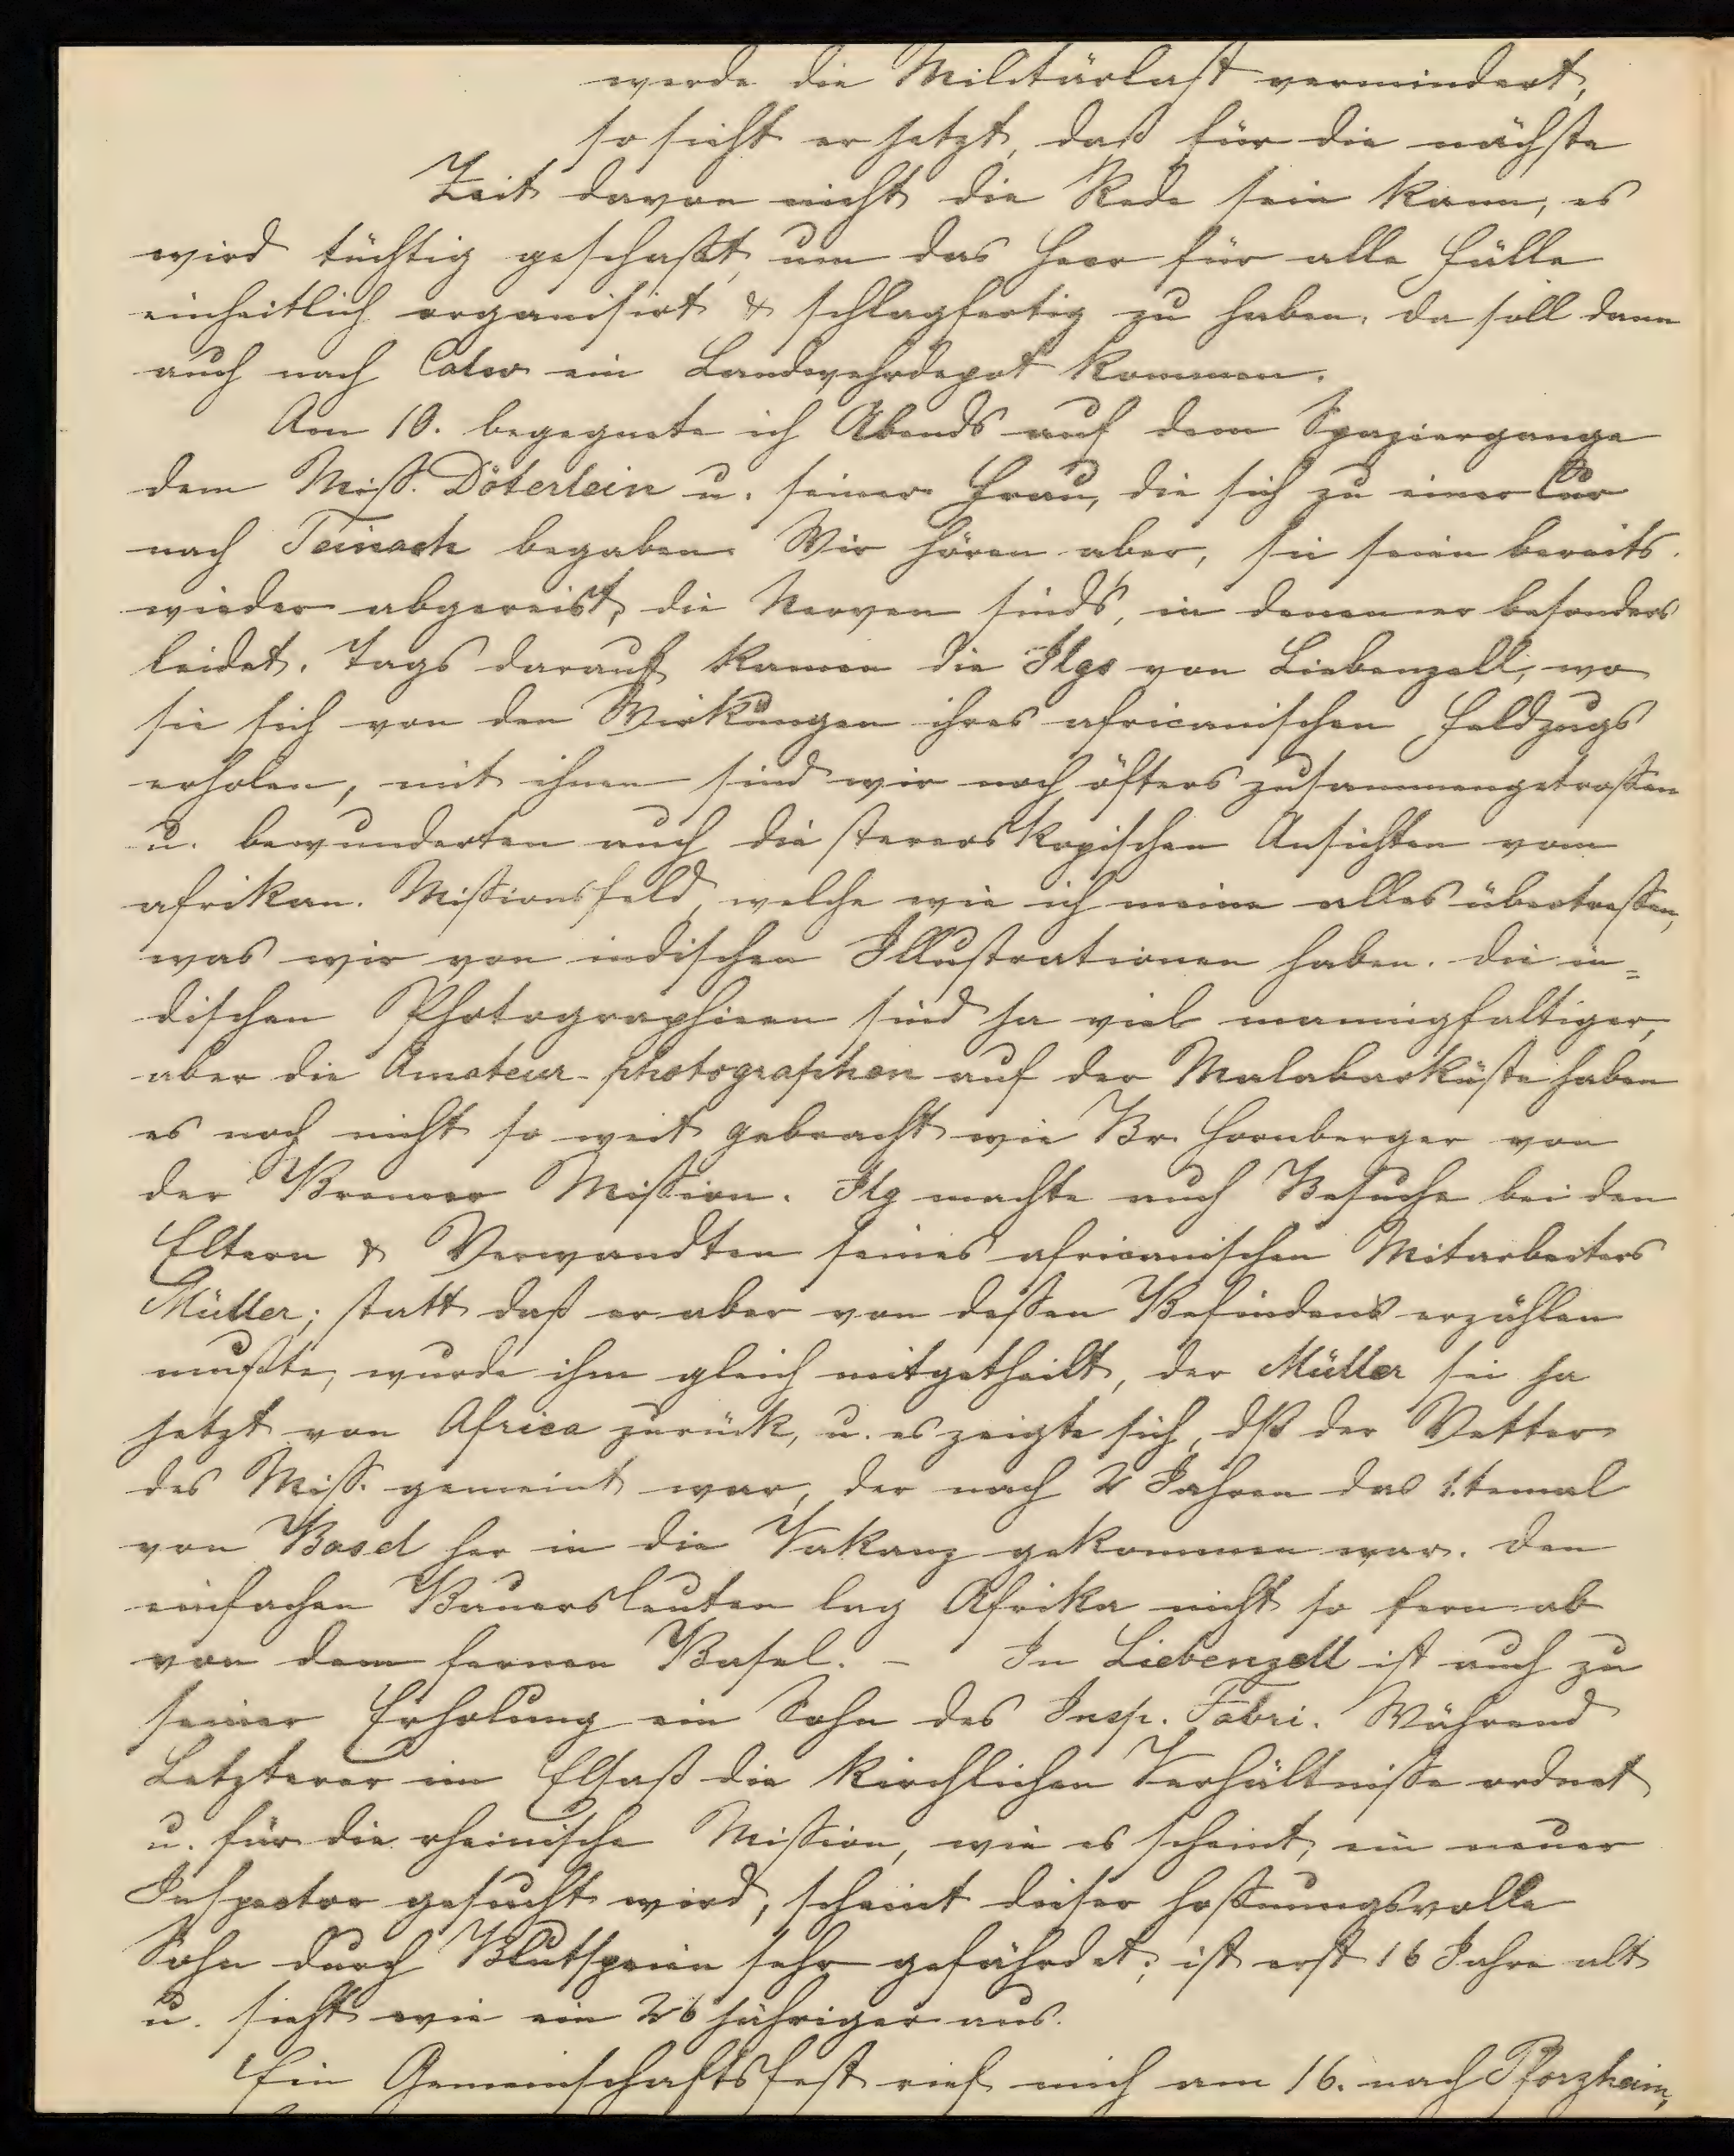 werde die Militärlast vermindert,
so sieht er jetzt, daß für die nächste
Zeit davon nicht die Rede sein kann, es
wird tüchtig geschafft, um das Heer für alle Fälle
einheitlich organisirt & schlagfertig zu haben. da soll dann
auch nach Calw ein Landwehrdepot kommen.
Am 10. begegnete ich Abends auf dem Spaziergange
dem Miss. Döterlein u. seiner Frau, die sich zu einer Cur
nach Teinach begaben. Wir hören aber, sie seien bereits
wieder abgereist, die Nerven sinds, in denen er besonders
leidet. Tags darauf kamen die Ilgs von Liebenzell, wo
sie sich von den Wirkungen ihres africanischen Feldzugs
erholen, mit ihnen sind wir noch öfters zusammengetroffen
u. bewunderten auch die stereoskopischen Ansichten vom
afrikan. Missionsfeld, welche wie ich meine alles übertreffen,
was wir von indischen Illustrationen haben. die in=
dischen Photographieen sind ja viel mannigfaltiger,
aber die Amateur-photographen auf der Malabarküste haben
es noch nicht so weit gebracht wie Br. Hornberger von
der Bremer Mission. Ilg machte auch Besuche bei den
Eltern & Verwandten seines africanischen Mitarbeiters
Müller; statt daß er aber von dessen Befinden erzählen
mußte, wurde ihm gleich mitgetheilt, der Müller sei ja
jetzt von Africa zurück, u. es zeigte sich, dß der Vetter
des Miss. gemeint war, der nach 2 Jahren das 1.temal
von Basel her in die Vakanz gekommen war. den
einfachen Bauersleuten lag Afrika nicht so fern ab
von dem fernen Basel. - In Liebenzell ist auch zu
seiner Erholung ein Sohn des Insp. Fabri. Während
Letzterer im Elsaß die kirchlichen Verhältnisse ordnet
u. für die rheinische Mission, wie es scheint, ein neuer
Inspector gesucht wird, scheint dieser hoffnungsvolle
Sohn durch Blutspeien sehr gefährdet; ist erst 16 Jahre alt
u. sieht wie ein 26 jähriger aus.
Ein Gemeinschaftsfest rief mich am 16. nach Pforzheim,